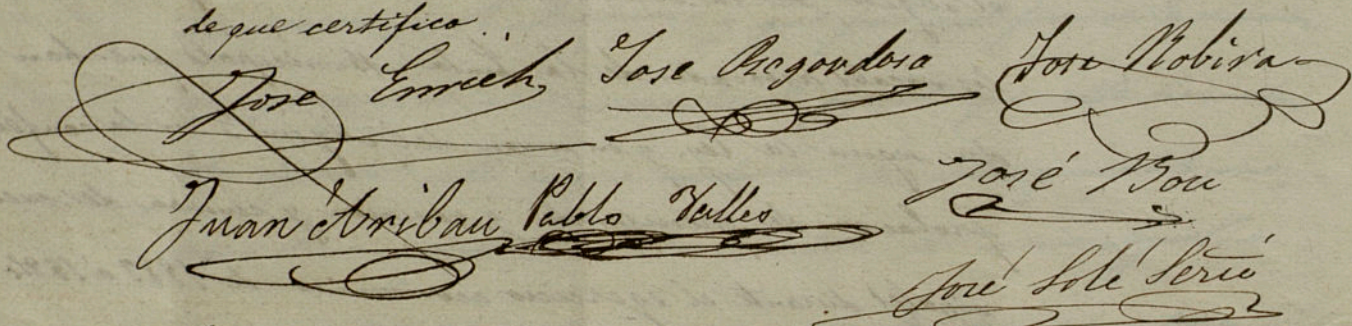 de que certifico.
Jose Enrich Jose Regordosa Jose Robira
José Bou
Juan Aribau Pablo Valles
José Solé Serió